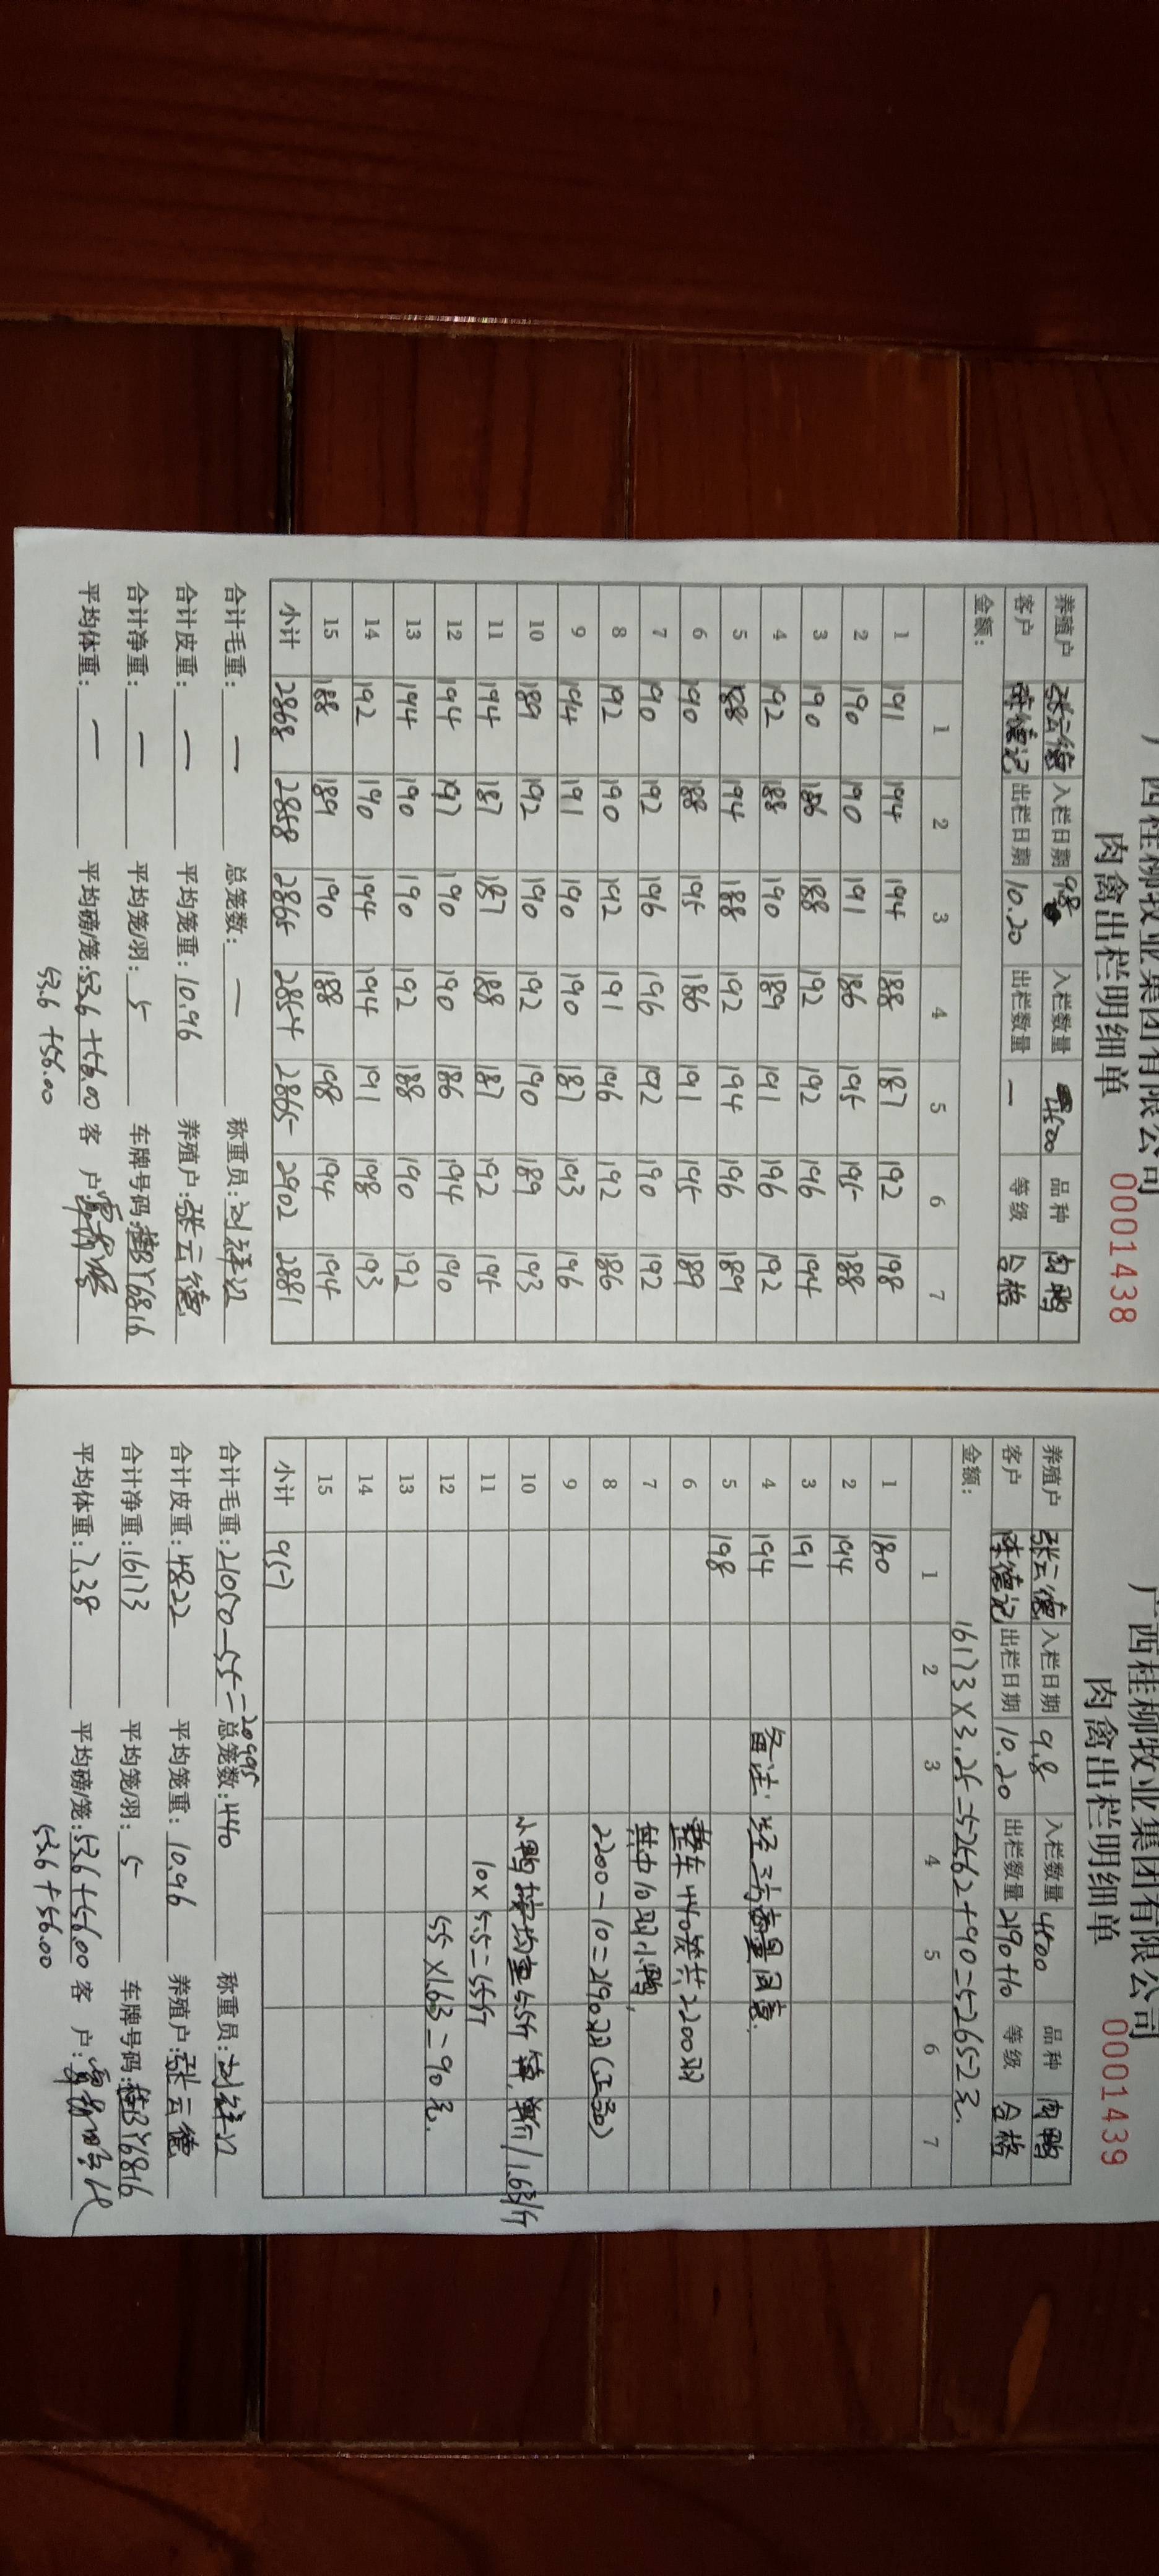 广西桂柳牧业集团有限公司
肉禽出栏明细单 0001438
养殖户 张云德 入栏日期 9.8 入栏数量 4500 品种 肉鸭
客户 陈德记 出栏日期 10.20 出栏数量 一 等级 合格
金额:
1 2 3 4 5 6 7
1 191 194 194 188 187 192 198
2 190 190 191 186 195 195 188
3 190 186 188 192 192 196 194
4 192 188 190 189 191 196 192
5 188 194 188 192 194 196 189
6 190 188 195 186 191 195 189
7 190 192 196 196 192 190 192
8 192 190 192 191 196 192 186
9 194 191 190 190 187 193 196
10 189 192 190 192 190 189 193
11 194 187 187 188 187 192 195
12 194 197 190 190 186 194 190
13 194 190 190 192 188 190 192
14 192 190 194 194 191 198 193
15 188 189 190 188 198 194 194
小计 2868 2858 2865 2854 2865 2902 2881
合计毛重: 一 总笼数: 一 称重员:
合计皮重: 一 平均笼重: 10.96 养殖户: 张云德
合计净重: 一 平均笼/羽: 5 车牌号码: 桂BY6816
平均体重: 一 平均磅/笼: 53.6+56.00 客 户:
53.6+56.00
广西桂柳牧业集团有限公司
肉禽出栏明细单 0001439
养殖户 张云德 入栏日期 9.8 入栏数量 4500 品种 肉鸭
客户 陈德记 出栏日期 10.20 出栏数量 2190+10 等级 合格
金额: 16173×3.25=52562+90=52652元.
1 2 3 4 5 6 7
1 180
2 194
3 191
4 194 备注: 经三方商量同意.
5 198
6 整车440笼共2200羽
7 其中10羽小鸭,
8 2200-10=2190羽(正品)
9
10 小鸭按均重5.5斤算,单价/1.63/斤
11 10×5.5=55斤
12 55×1.63=90元.
13
14
15
小计 957
合计毛重: 21050-55=20995 总笼数: 440 称重员:
合计皮重: 4822 平均笼重: 10.96 养殖户: 张云德
合计净重: 16173 平均笼/羽: 5 车牌号码: 桂BY6816
平均体重: 7.38 平均磅/笼: 53.6+56.00 客 户:
53.6+56.00